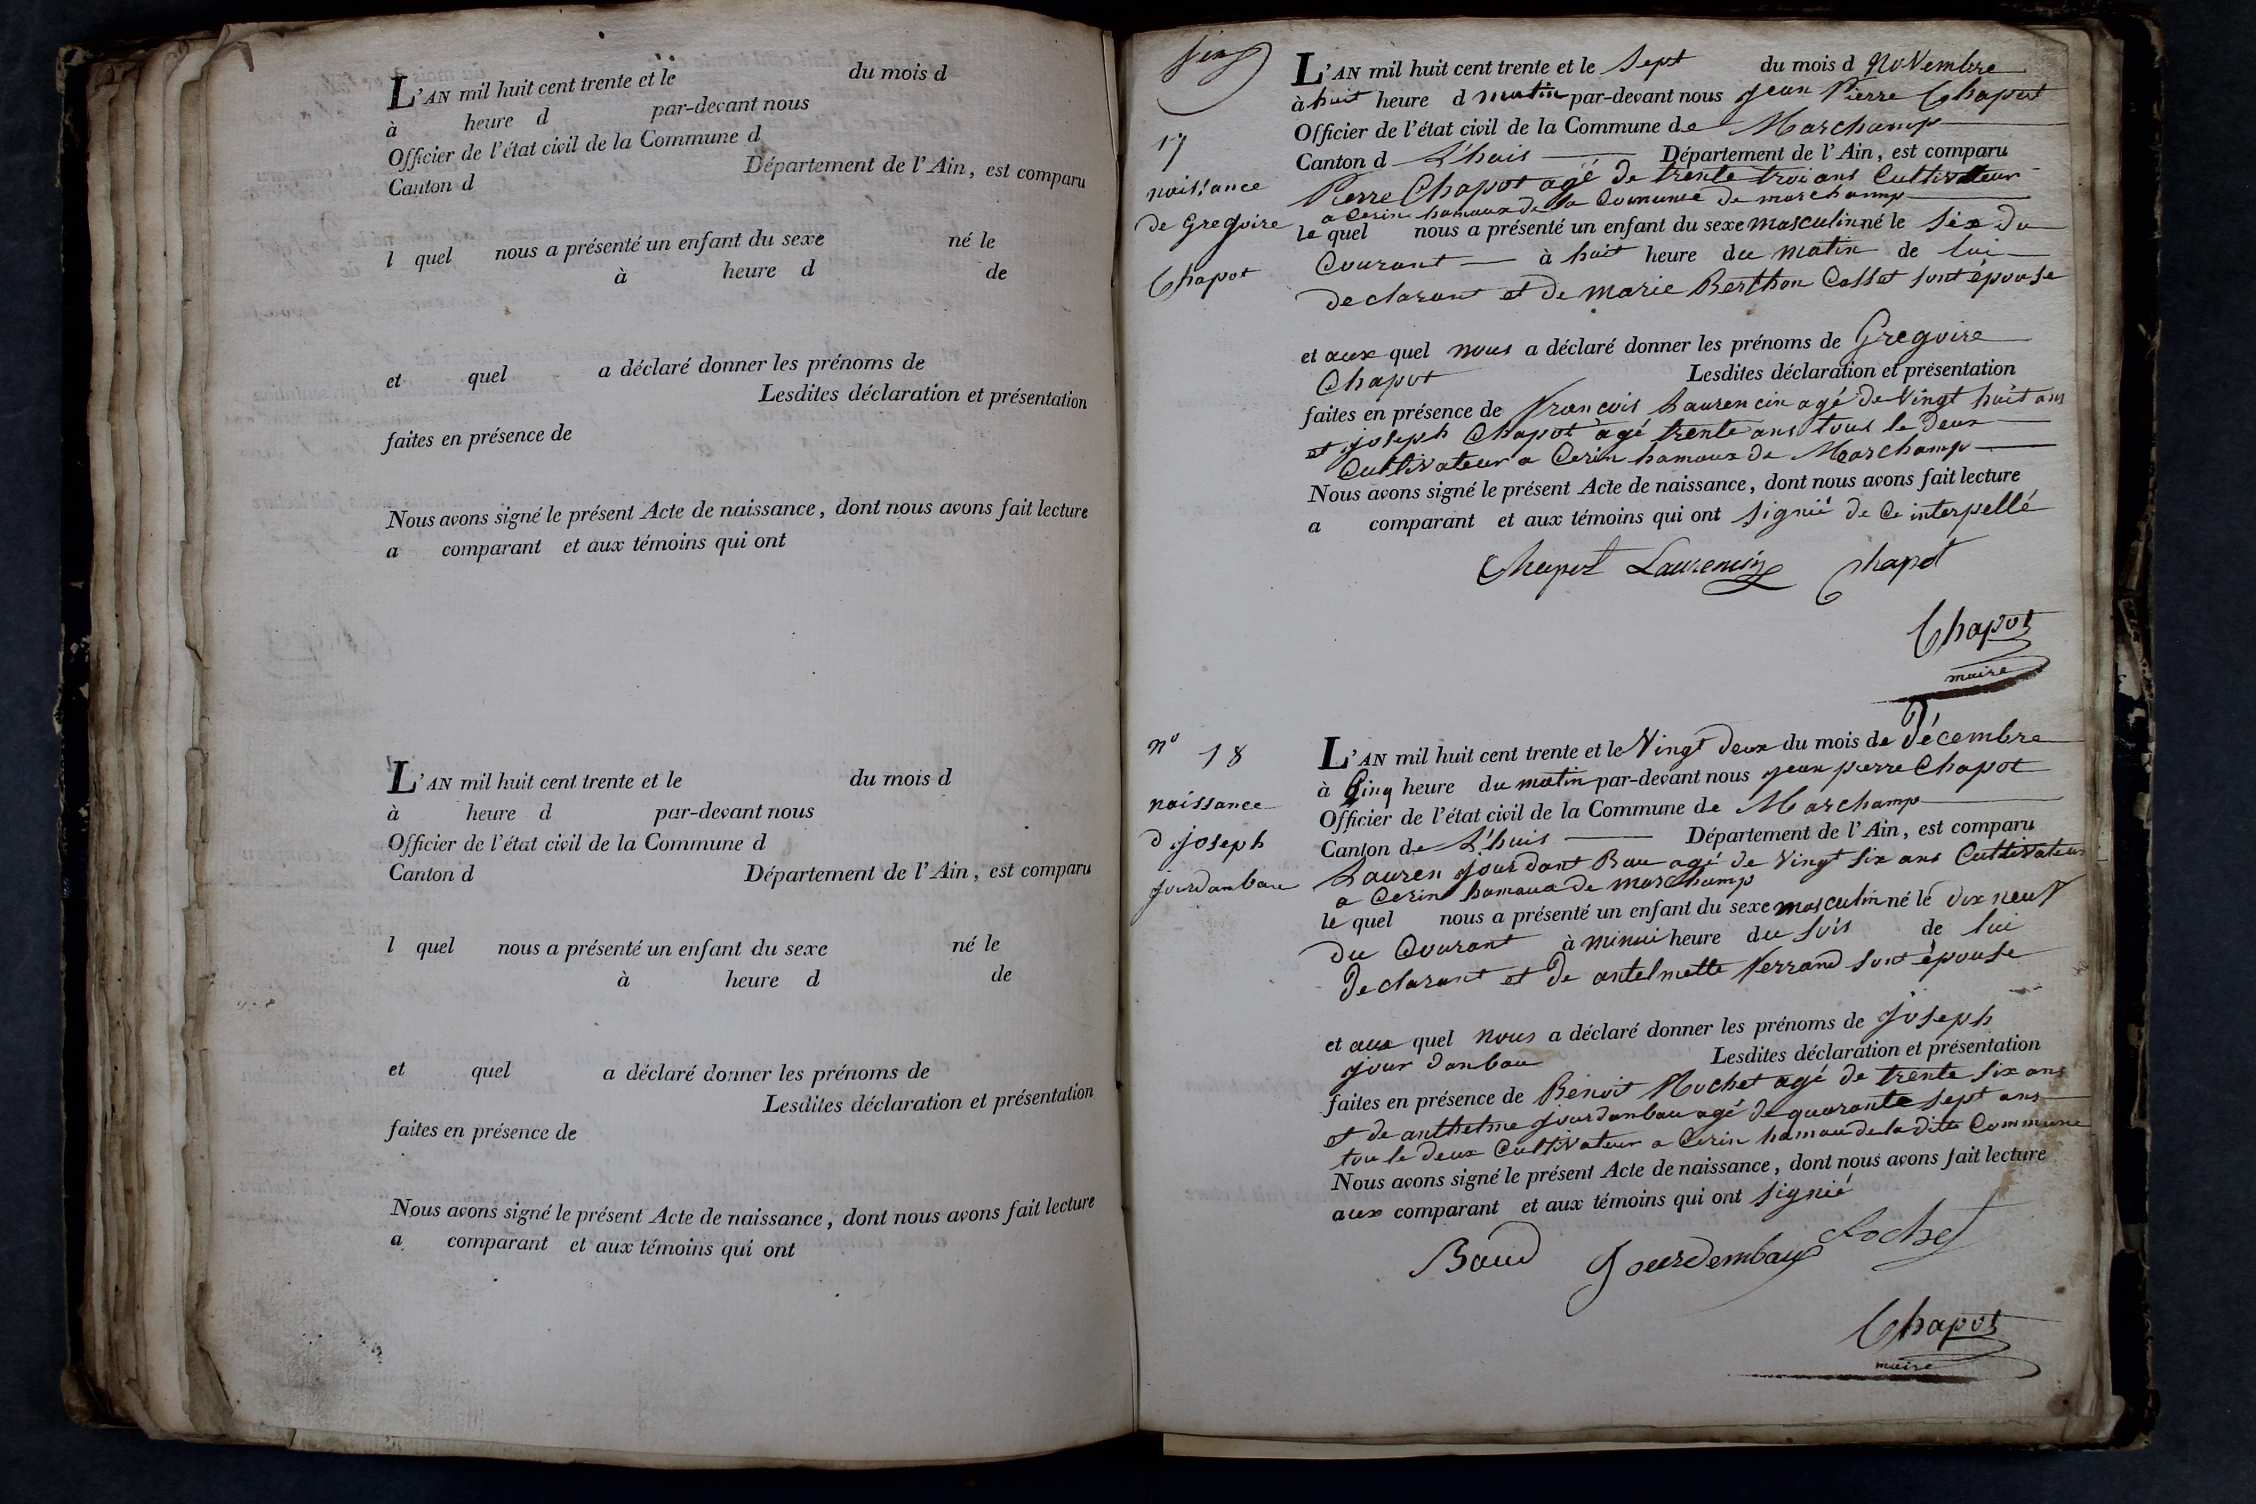 L'AN mil huit cent trente et le du mois d
à heure d par-devant nous
Officier de l'état civil de la Commune d
Canton d Département de l'Ain, est comparu
l quel nous a présenté un enfant du sexe né le
à heure d de
et quel a déclaré donner les prénoms de
Lesdites déclaration et présentation
faites en présence de
Nous avons signé le présent Acte de naissance, dont nous avons fait lecture
a comparant et aux témoins qui ont
L'AN mil huit cent trente et le du mois d
à heure d par-devant nous
Officier de l'état civil de la Commune d
Canton d Département de l'Ain, est comparu
l quel nous a présenté un enfant du sexe né le
à heure d de
et quel a déclaré donner les prénoms de
Lesdites déclaration et présentation
faites en présence de
Nous avons signé le présent Acte de naissance, dont nous avons fait lecture
a comparant et aux témoins qui ont
17
naissance
de Gregoire
Chapot
L'AN mil huit cent trente et le Sept du mois d Novembre
à huit heure d matin par-devant nous jean Pierre Chapot
Officier de l'état civil de la Commune de Marchamp
Canton d L'huis Département de l'Ain, est comparu
Pierre Chapot agé de trente troi ans Cultivateur
a Cerin hamaux de la Commune de marchamp
le quel nous a présenté un enfant du sexe masculin né le Six du
Courant à huit heure du matin de lui
declarant et de marie Berthon Cassat sont épouse
et aux quel nous a déclaré donner les prénoms de Gregoire
Chapot Lesdites déclaration et présentation
faites en présence de François Laurencin agé de Vingt huit ans
et joseph Chapot agé trente ans tous le deux
Cultivateur a Cerin hamaux de Marchamp
Nous avons signé le présent Acte de naissance, dont nous avons fait lecture
a comparant et aux témoins qui ont signié de Ce interpellé
Chapot Laurencin Chapot
Chapot
maire
n° 18
naissance
d joseph
jourdanbau
L'AN mil huit cent trente et le Vingt deux du mois de Décembre
à Cinq heure du matin par-devant nous jean pierre Chapot
Officier de l'état civil de la Commune de Marchamp
Canton de L'huis Département de l'Ain, est comparu
Lauren jourdant Bau agé de Vingt Six ans Cultivateur
a Cerin hamaux de marchamp
le quel nous a présenté un enfant du sexe masculin né le dix neuf
du Courant à minui heure du soir de lui
declarant et de antelmette Ferrand sont épouse
et aux quel nous a déclaré donner les prénoms de joseph
jour danbau Lesdites déclaration et présentation
faites en présence de Benoit Rochet agé de trente six ans
et de anthelme jourdanbau agé de quarante sept ans
tou le deux Cultivateur a Cerin hamau de la ditte Commune
Nous avons signé le présent Acte de naissance, dont nous avons fait lecture
aux comparant et aux témoins qui ont signié
Baud Jourdembau Rochet
Chapot
maire